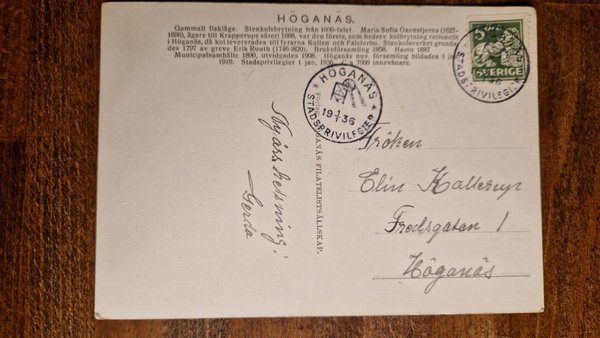 HÖGANÄS.
Gammalt fiskläge. Stenkolsbrytning från 1600-talet. Maria Sofia Oxenstjerna (1627-
1696), ägare till Krapperups säteri 1668, var den första, som bedrev kolbrytning rationellt
i Höganäs, då kol levererades till fyrarna Kullen och Falsterbo. Stenkolsverket grunda-
des 1797 av greve Erik Ruuth (1746-1820). Bruksförsamling 1858. Hamn 1887
Municipalsamhälle 1890, utvidgades 1908. Höganäs nuv. församling bildades 1
1919. Stadsprivilegier 1 jan. 1936. C:a 7000 innevånare.
5
SVERIGE
STADSPRIVILEGIER
HÖGANÄS
19 1/1 36
STADSPRIVILEGIER
HÖGANÄS FILATELISTSÄLLSKAP.
Nyårshelsning!
Gerda
Fröken
Elin Kallerup
Fredsgatan 1
Höganäs